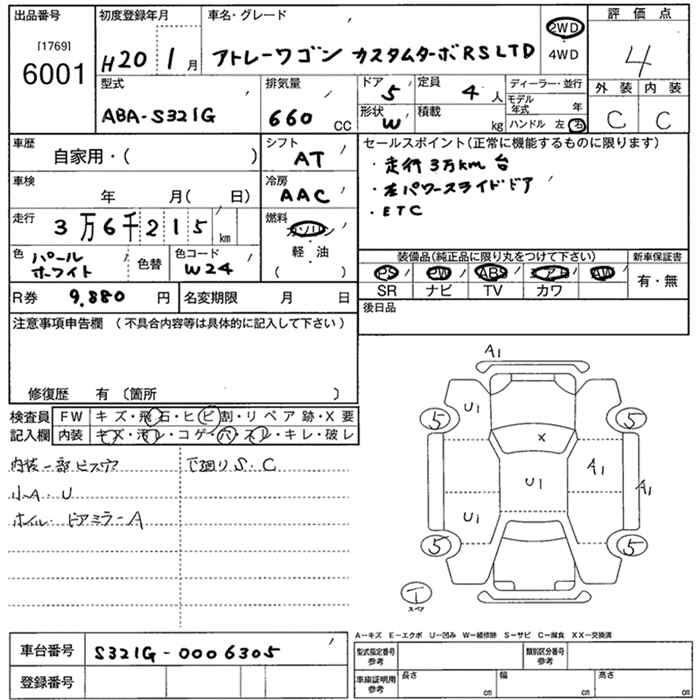 出品番号
[1769]
6001
初度登録年月
H20 1月
車名・グレード
アトレーワゴン カスタムターボRSLTD
2WD
4WD
評価点
4
外装 内装
C C
型式
ABA-S321G
排気量
660 CC
ドア
5
定員
4人
形状
W
積載
kg
ディーラー・並行
モデル年式 年
ハンドル 左 右
車歴
自家用・( )
シフト
AT
セールスポイント(正常に機能するものに限ります)
・走行3万km台
・左パワースライドドア
・ETC
車検
年 月( 日)
冷房
AAC
走行
3万6千215km
燃料
ガソリン
・
軽・油
( )
色
パールホワイト
色替
色コード
W24
装備品(純正品に限り丸をつけて下さい)
PS PW ABS エアB AW
SR ナビ TV カワ
新車保証書
有・無
R券 9,880円
名変期限 月 日
後日品
注意事項申告欄 (不具合内容等は具体的に記入して下さい)
修復歴 有 (箇所 )
検査員記入欄
FW キズ・飛石・ヒビ割・リペア跡・X要
内装 キズ・汚レ・コゲ・穴・スレ・キレ・破レ
内装一部ビスアナ
下廻りS・C
小A・U
ホイル・ドアミラーA
A1
U1
5
5
X
U1
A1
A1
U1
5
5
T
スペア
A−キズ E−エクボ U−凹み W−補修跡 S−サビ C−腐食 XX−交換済
車台番号
S321G-0006305
登録番号
型式指定番号参考
類別区分番号参考
車庫証明用参考
長さ cm
幅 cm
高さ cm